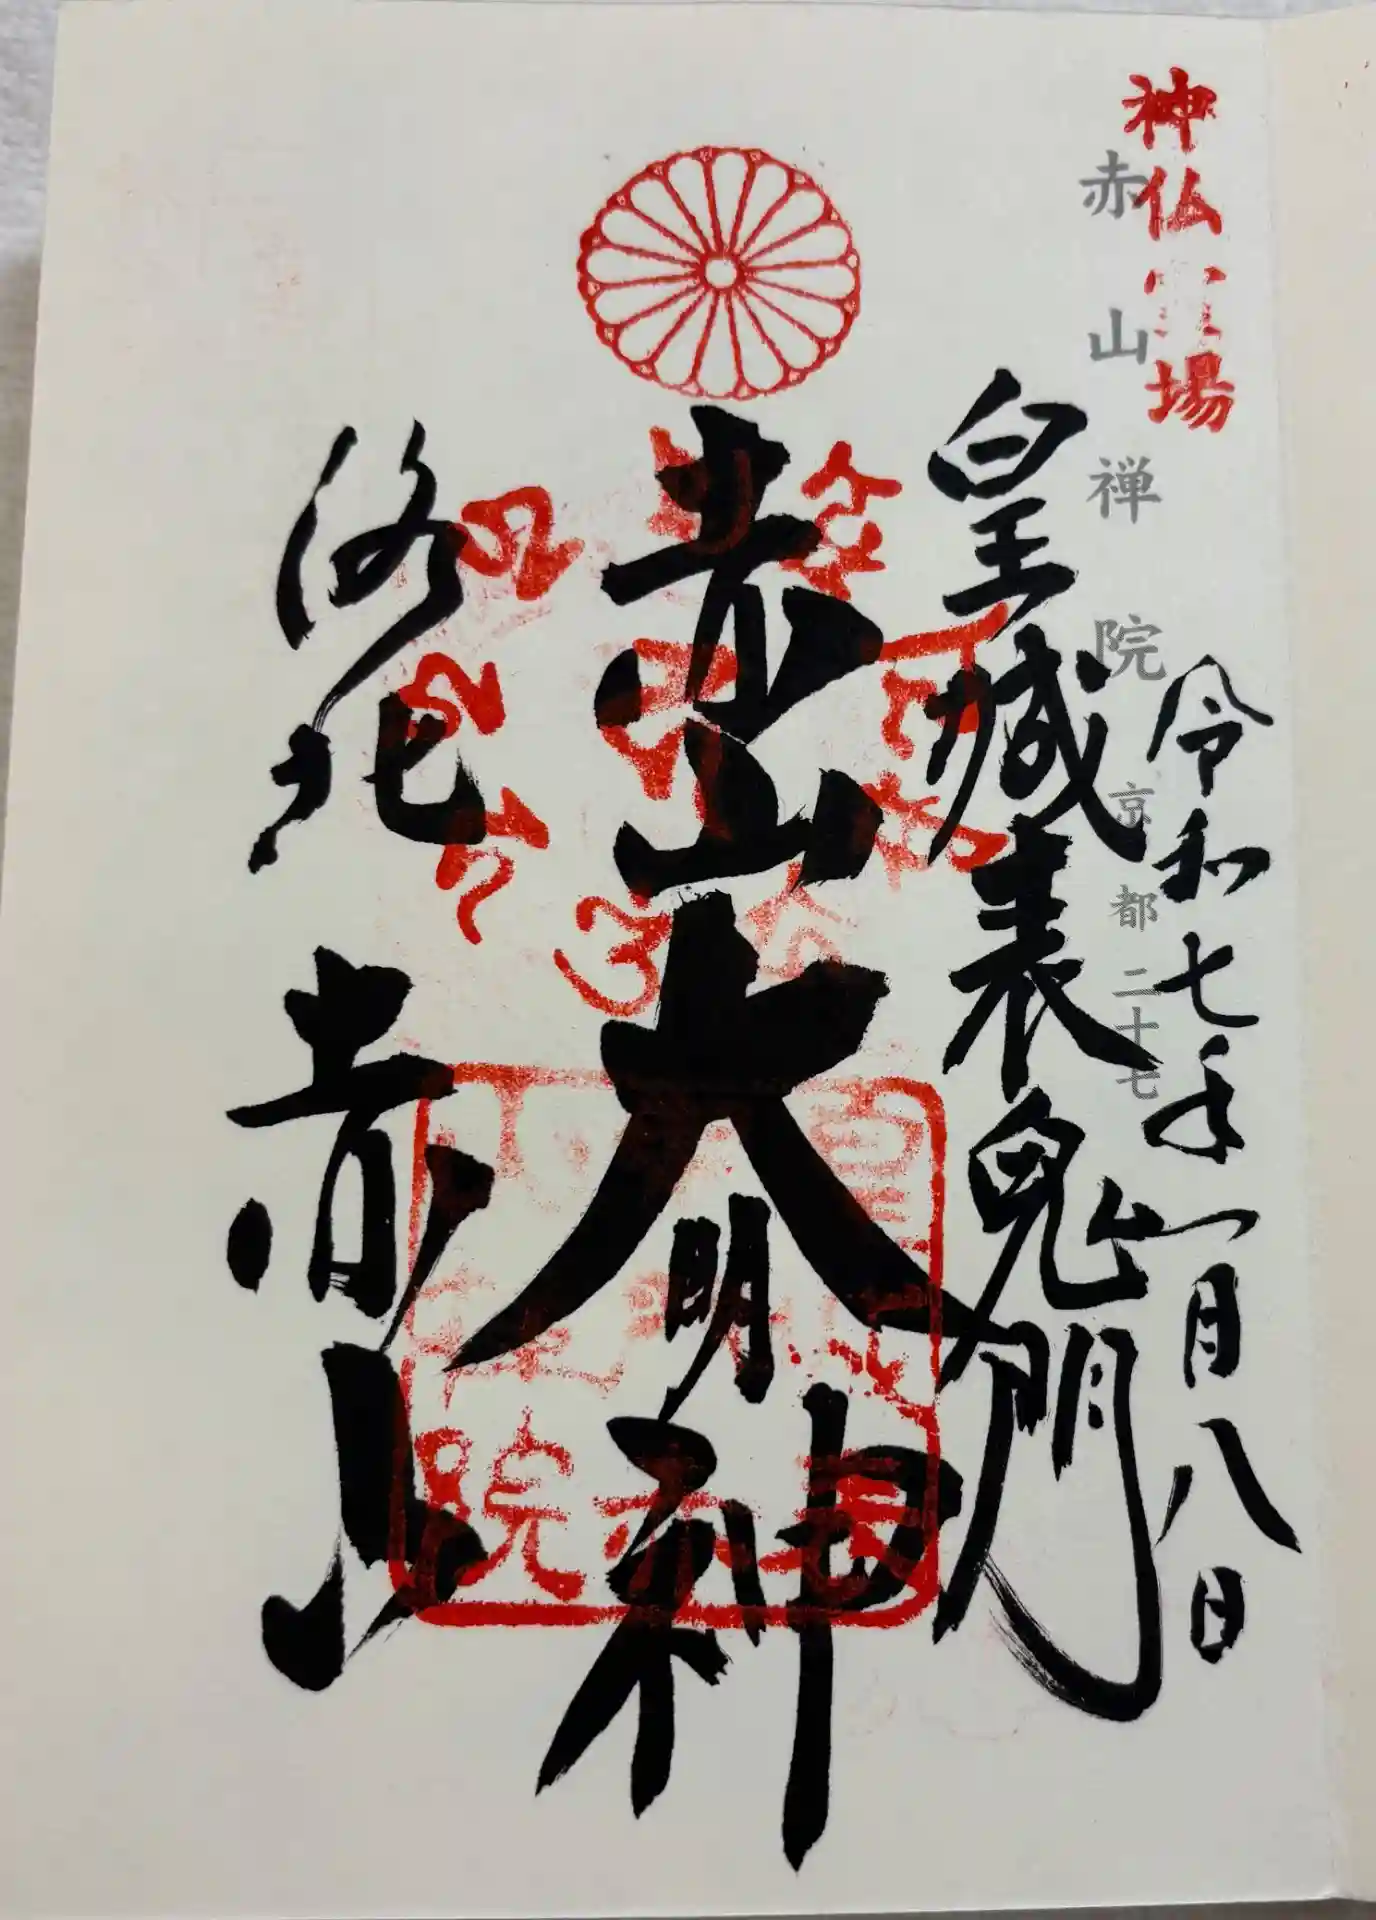 神仏霊場
赤山禅院 京都二十七
令和七年一月八日
皇城表鬼門
赤山大明神
洛北 赤山
院